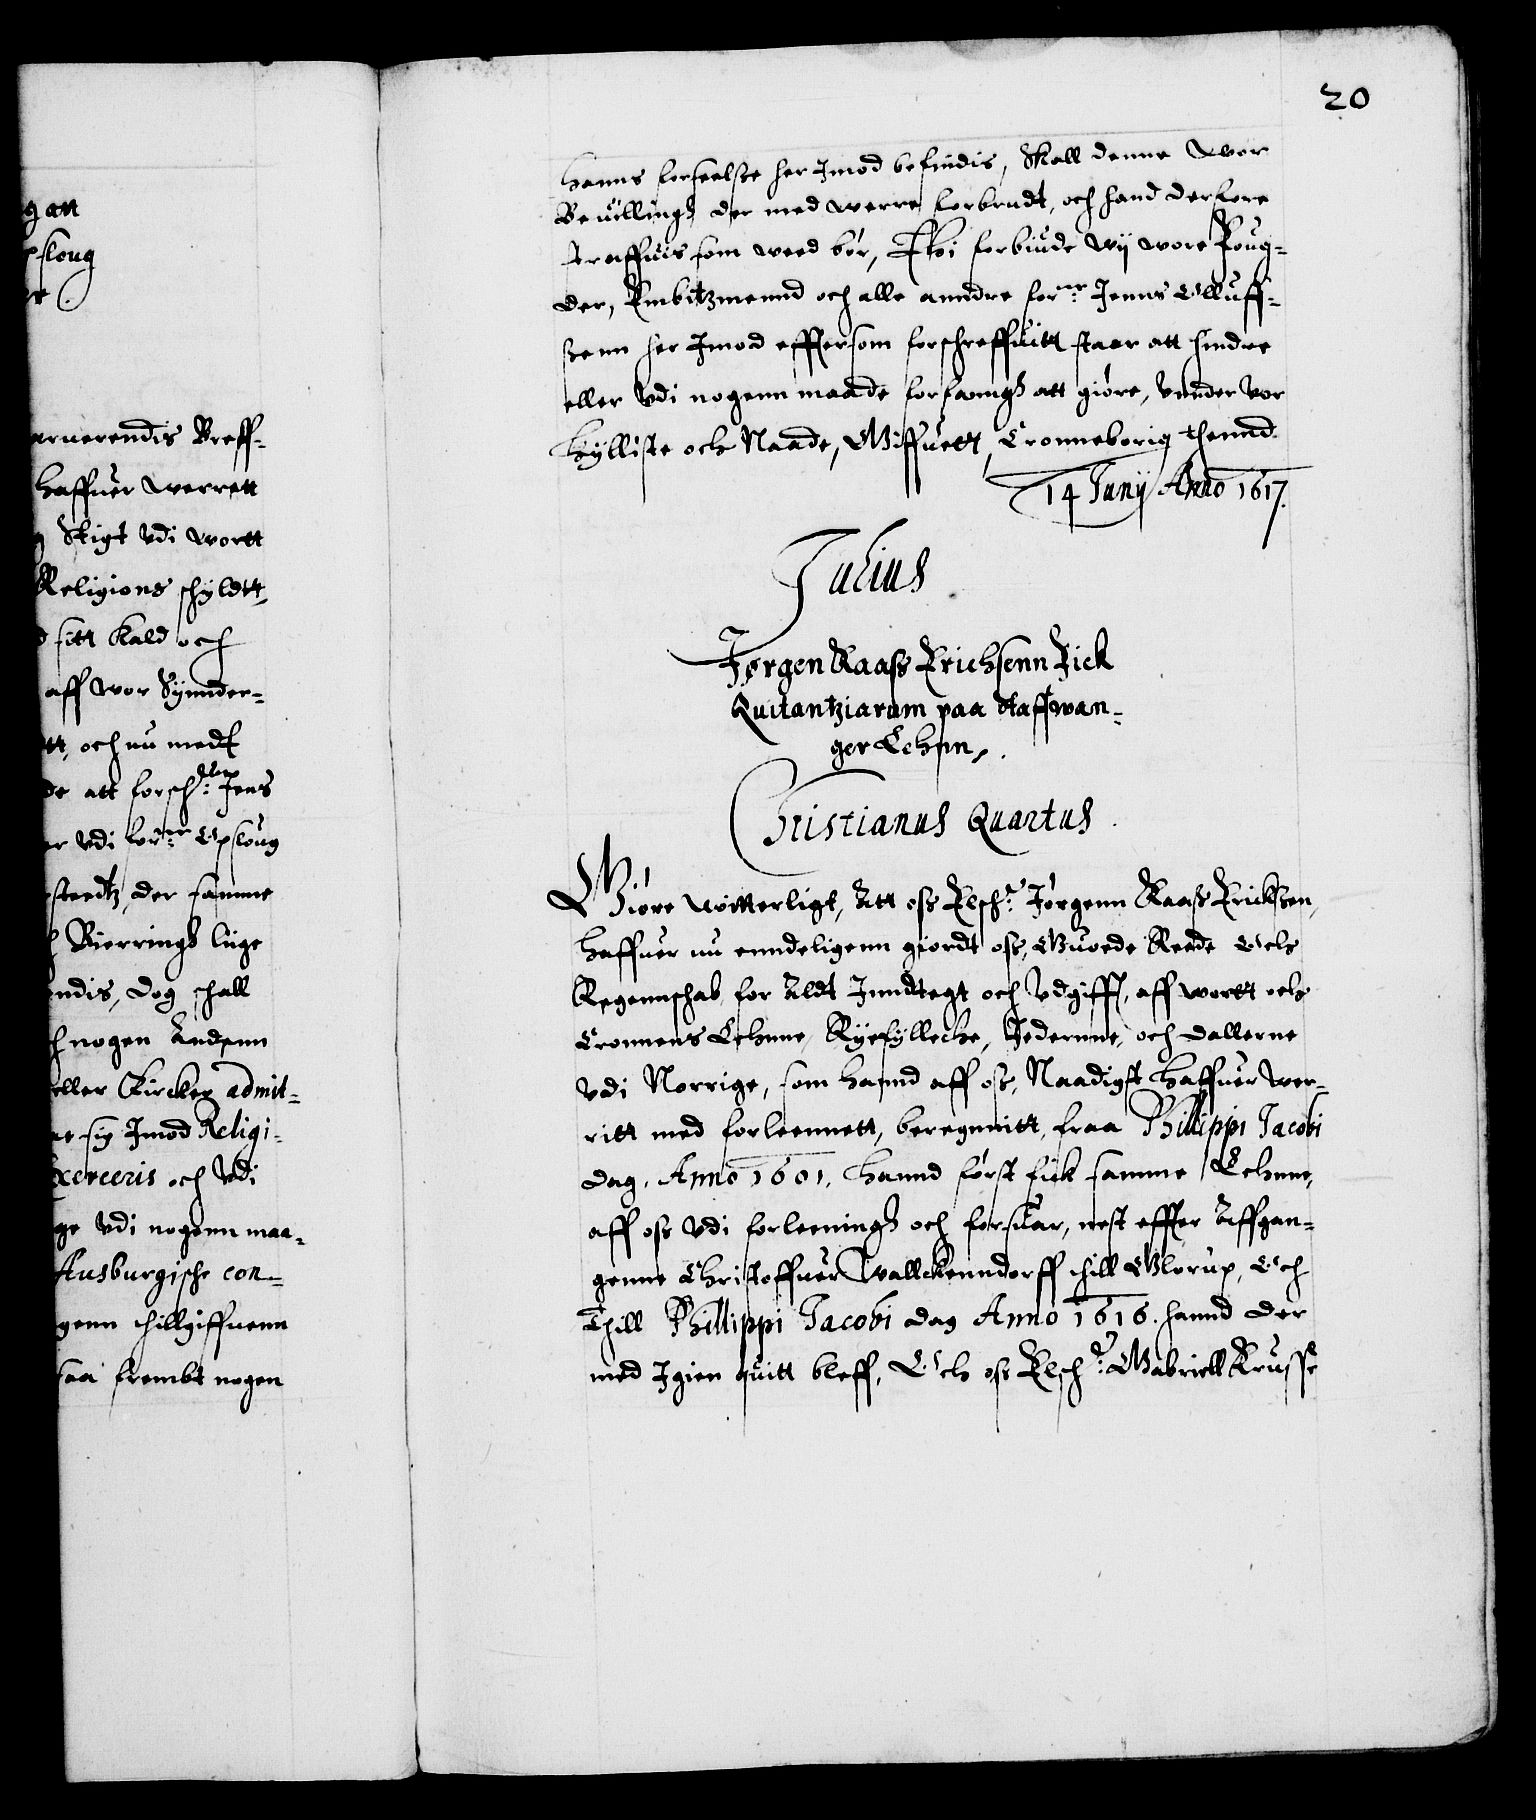 gan
psloug
er.
aruerendis Breff-
haffuer werrett
Stigt vdi wortt
Religions schyldtt,
sitt kald och
aff wor Synnder-
tt, och nu medt
de att forsch: Jens
er vdi for:ne Opsloug
stedtz, der samme
Bierrings liige
endis, dog schall
h nogen Andenn
eller Kircker admit-
ne sig Imod Religi-
exerceris och vdi
ge vdi nogenn maa-
Ausburgische con-
genn thillgiffuenn
saa frembt nogen
20
hanns forseelsse her Imod befindis, Skall denne Wor
Beuillingh der med werre forbrudt, och hand derfore
straffuis som wed bør, Thi forbiude wij wore Foug-
der, Embitzmennd och alle anndre for:ne Jenns Olluff-
ssenn her Imod effttersom forschreffuitt staar att hindre
eller vdi nogenn maade forfanngh att giøre, vnnder vor
hylliste och Naade, Giffuett, Cronneborig thennd
14 Junij Anno 1617.
Julius
Jørgen Kaass Erichsenn Fick
Quitantziarum paa Staffwan-
ger Lehnn.
Christianus Quartus.
Giøre witterligt, Att oss Elsch: Jørgenn Kaass Erickssen,
haffuer nu enndeligenn giordt oss, Guoede Rede Och
Regennschab for Aldt Inndtegt och Vdgifft, aff wortt och
Cronnens Lehnne, Ryefyllecke, Jedernne, och Dallerne
vdi Norrige, som hannd aff oss, Naadigst haffuer wer-
ritt med forleennett, beregnnitt, fraa Phillippi Jacobi
dag, Anno 1601, hannd først fick samme Lehnne,
aff oss vdi forleeningh och forsuar, nest effter Affgan-
genne Christoffuer Wallckenndorff thill Glorup, Och
Thill Phillippi Jacobi dag Anno 1616. hannd der
med Igien quitt bleff, Och oss Elsch: Gabriell Krusse